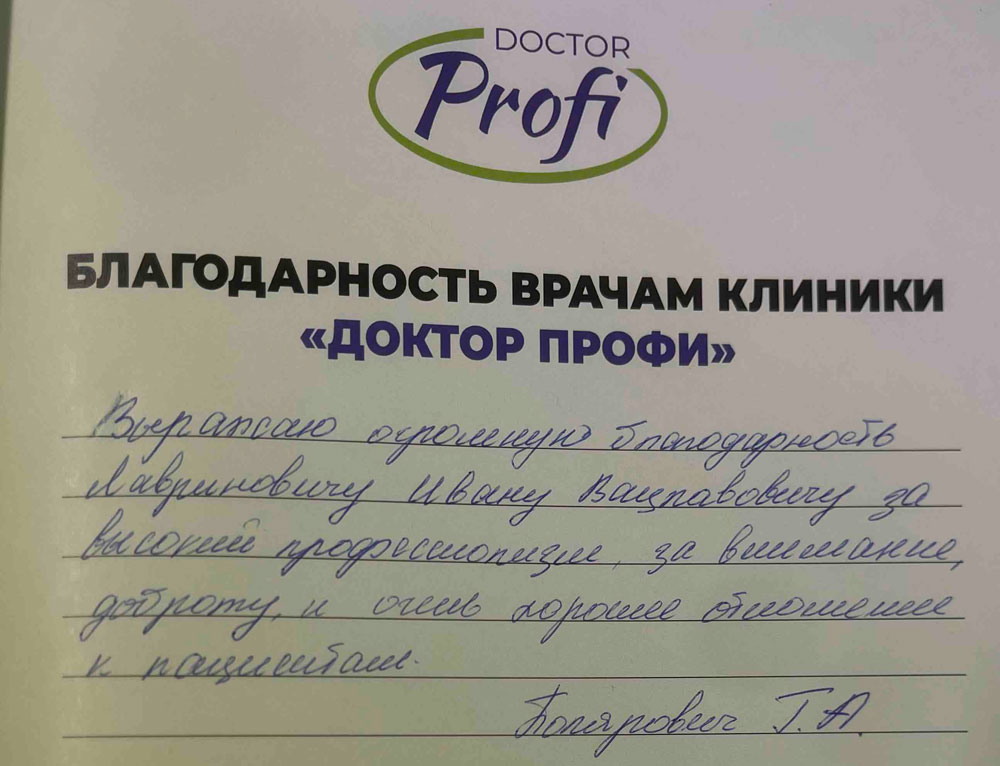 DOCTOR
Profi
БЛАГОДАРНОСТЬ ВРАЧАМ КЛИНИКИ
«ДОКТОР ПРОФИ»
Выражаю огромную благодарность
Лавриновичу Ивану Вацлавовичу за
высокий профессионализм, за внимание,
доброту, и очень хорошее отношение
к пациентам.
Т.А.